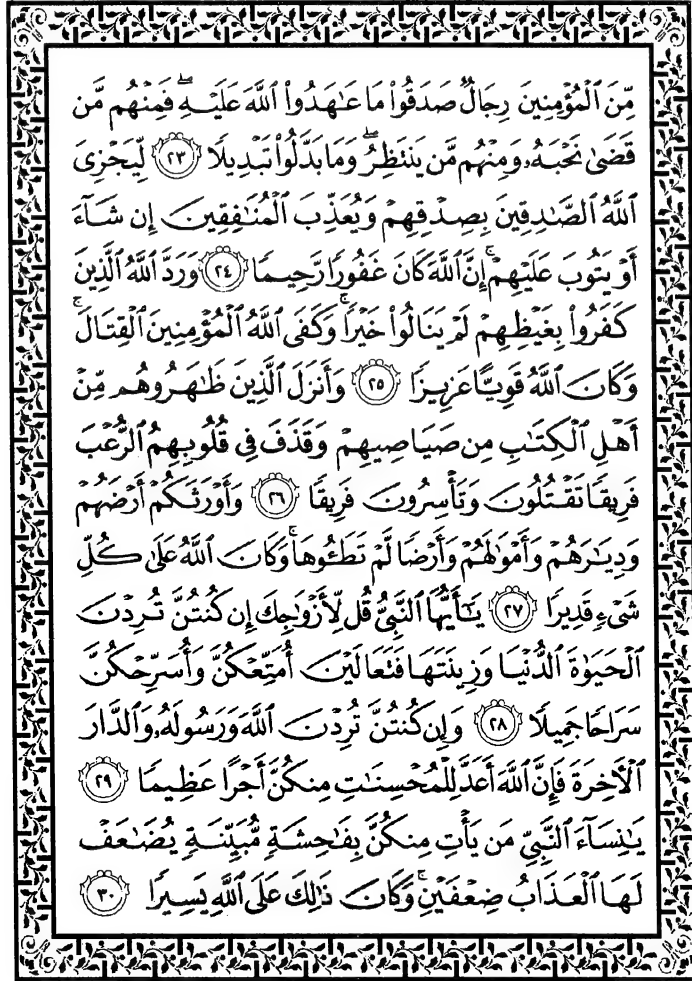 مِّنَ ٱلْمُؤْمِنِينَ رِجَالٌ صَدَقُوا۟ مَا عَٰهَدُوا۟ ٱللَّهَ عَلَيْهِ ۖ فَمِنْهُم مَّن
قَضَىٰ نَحْبَهُۥ وَمِنْهُم مَّن يَنتَظِرُ ۖ وَمَا بَدَّلُوا۟ تَبْدِيلًا ٢٣ لِّيَجْزِىَ
ٱللَّهُ ٱلصَّٰدِقِينَ بِصِدْقِهِمْ وَيُعَذِّبَ ٱلْمُنَٰفِقِينَ إِن شَآءَ
أَوْ يَتُوبَ عَلَيْهِمْ ۚ إِنَّ ٱللَّهَ كَانَ غَفُورًا رَّحِيمًا ٢٤ وَرَدَّ ٱللَّهُ ٱلَّذِينَ
كَفَرُوا۟ بِغَيْظِهِمْ لَمْ يَنَالُوا۟ خَيْرًا ۚ وَكَفَى ٱللَّهُ ٱلْمُؤْمِنِينَ ٱلْقِتَالَ ۚ
وَكَانَ ٱللَّهُ قَوِيًّا عَزِيزًا ٢٥ وَأَنزَلَ ٱلَّذِينَ ظَٰهَرُوهُم مِّنْ
أَهْلِ ٱلْكِتَٰبِ مِن صَيَاصِيهِمْ وَقَذَفَ فِى قُلُوبِهِمُ ٱلرُّعْبَ
فَرِيقًا تَقْتُلُونَ وَتَأْسِرُونَ فَرِيقًا ٢٦ وَأَوْرَثَكُمْ أَرْضَهُمْ
وَدِيَٰرَهُمْ وَأَمْوَٰلَهُمْ وَأَرْضًا لَّمْ تَطَـُٔوهَا ۚ وَكَانَ ٱللَّهُ عَلَىٰ كُلِّ
شَىْءٍ قَدِيرًا ٢٧ يَٰٓأَيُّهَا ٱلنَّبِىُّ قُل لِّأَزْوَٰجِكَ إِن كُنتُنَّ تُرِدْنَ
ٱلْحَيَوٰةَ ٱلدُّنْيَا وَزِينَتَهَا فَتَعَالَيْنَ أُمَتِّعْكُنَّ وَأُسَرِّحْكُنَّ
سَرَاحًا جَمِيلًا ٢٨ وَإِن كُنتُنَّ تُرِدْنَ ٱللَّهَ وَرَسُولَهُۥ وَٱلدَّارَ
ٱلْءَاخِرَةَ فَإِنَّ ٱللَّهَ أَعَدَّ لِلْمُحْسِنَٰتِ مِنكُنَّ أَجْرًا عَظِيمًا ٢٩
يَٰنِسَآءَ ٱلنَّبِىِّ مَن يَأْتِ مِنكُنَّ بِفَٰحِشَةٍ مُّبَيِّنَةٍ يُضَٰعَفْ
لَهَا ٱلْعَذَابُ ضِعْفَيْنِ ۚ وَكَانَ ذَٰلِكَ عَلَى ٱللَّهِ يَسِيرًا ٣٠